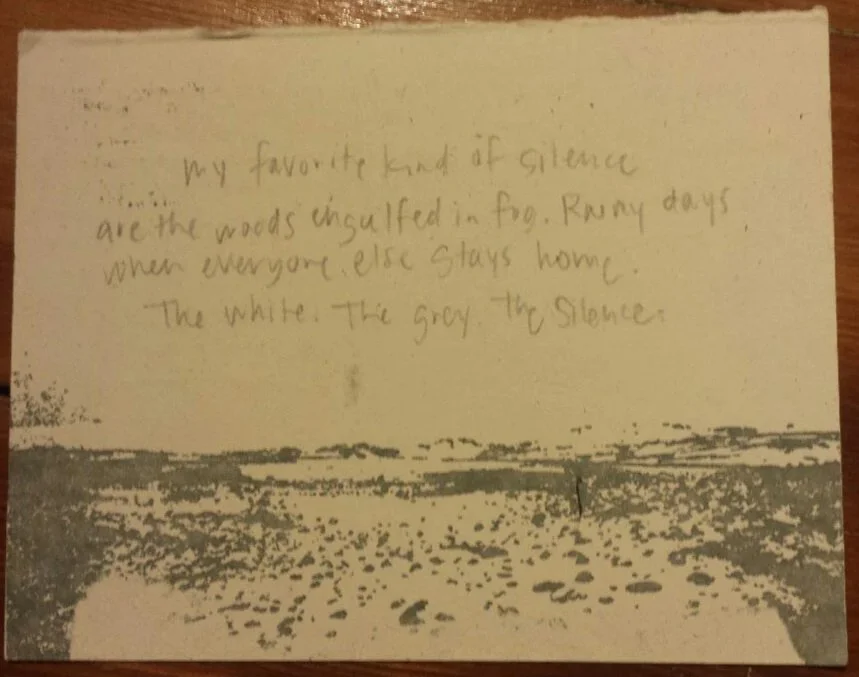 my favorite kind of silence
are the woods engulfed in fog. Rainy days
when everyone else stays home.
The white. The grey. The silence.